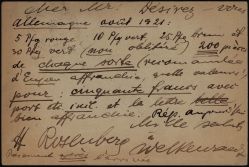 Cher Mr. Desirez - vous
Allemagne août 1921:
5 Pfg rouge. 10 Pfg vert, 25 Pfg brun et
30 Pfg vert (non oblitéré) 200 pièces
de chaque sorte (recommandée
d'Eupen affranchie, quelle valeur
pour: cinquante francs avec
port de et la lettre
bien affranchie. Rép. aujourd'hui
Mille salut
H Rosenberg à Welkenraedt